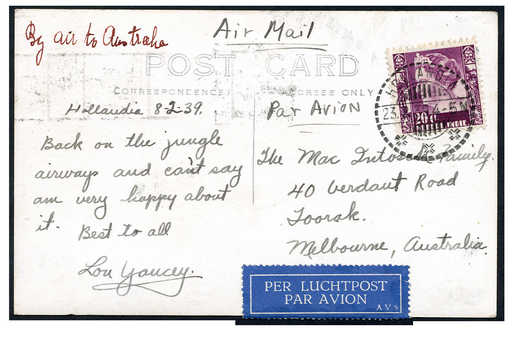 By air to Australia
Air Mail
POST CARD
CORRESPONDENCE
ADDRESS ONLY
Hollandia 8-2-39.
Par Avion
Back on the jungle
airways and can't say
am very happy about
it. Best to all
Lou Yancey.
The Mac Intosh Family.
40 Verdant Road
Toorak.
Melbourne, Australia.
20 CT
23.
PER LUCHTPOST
PAR AVION
AVS